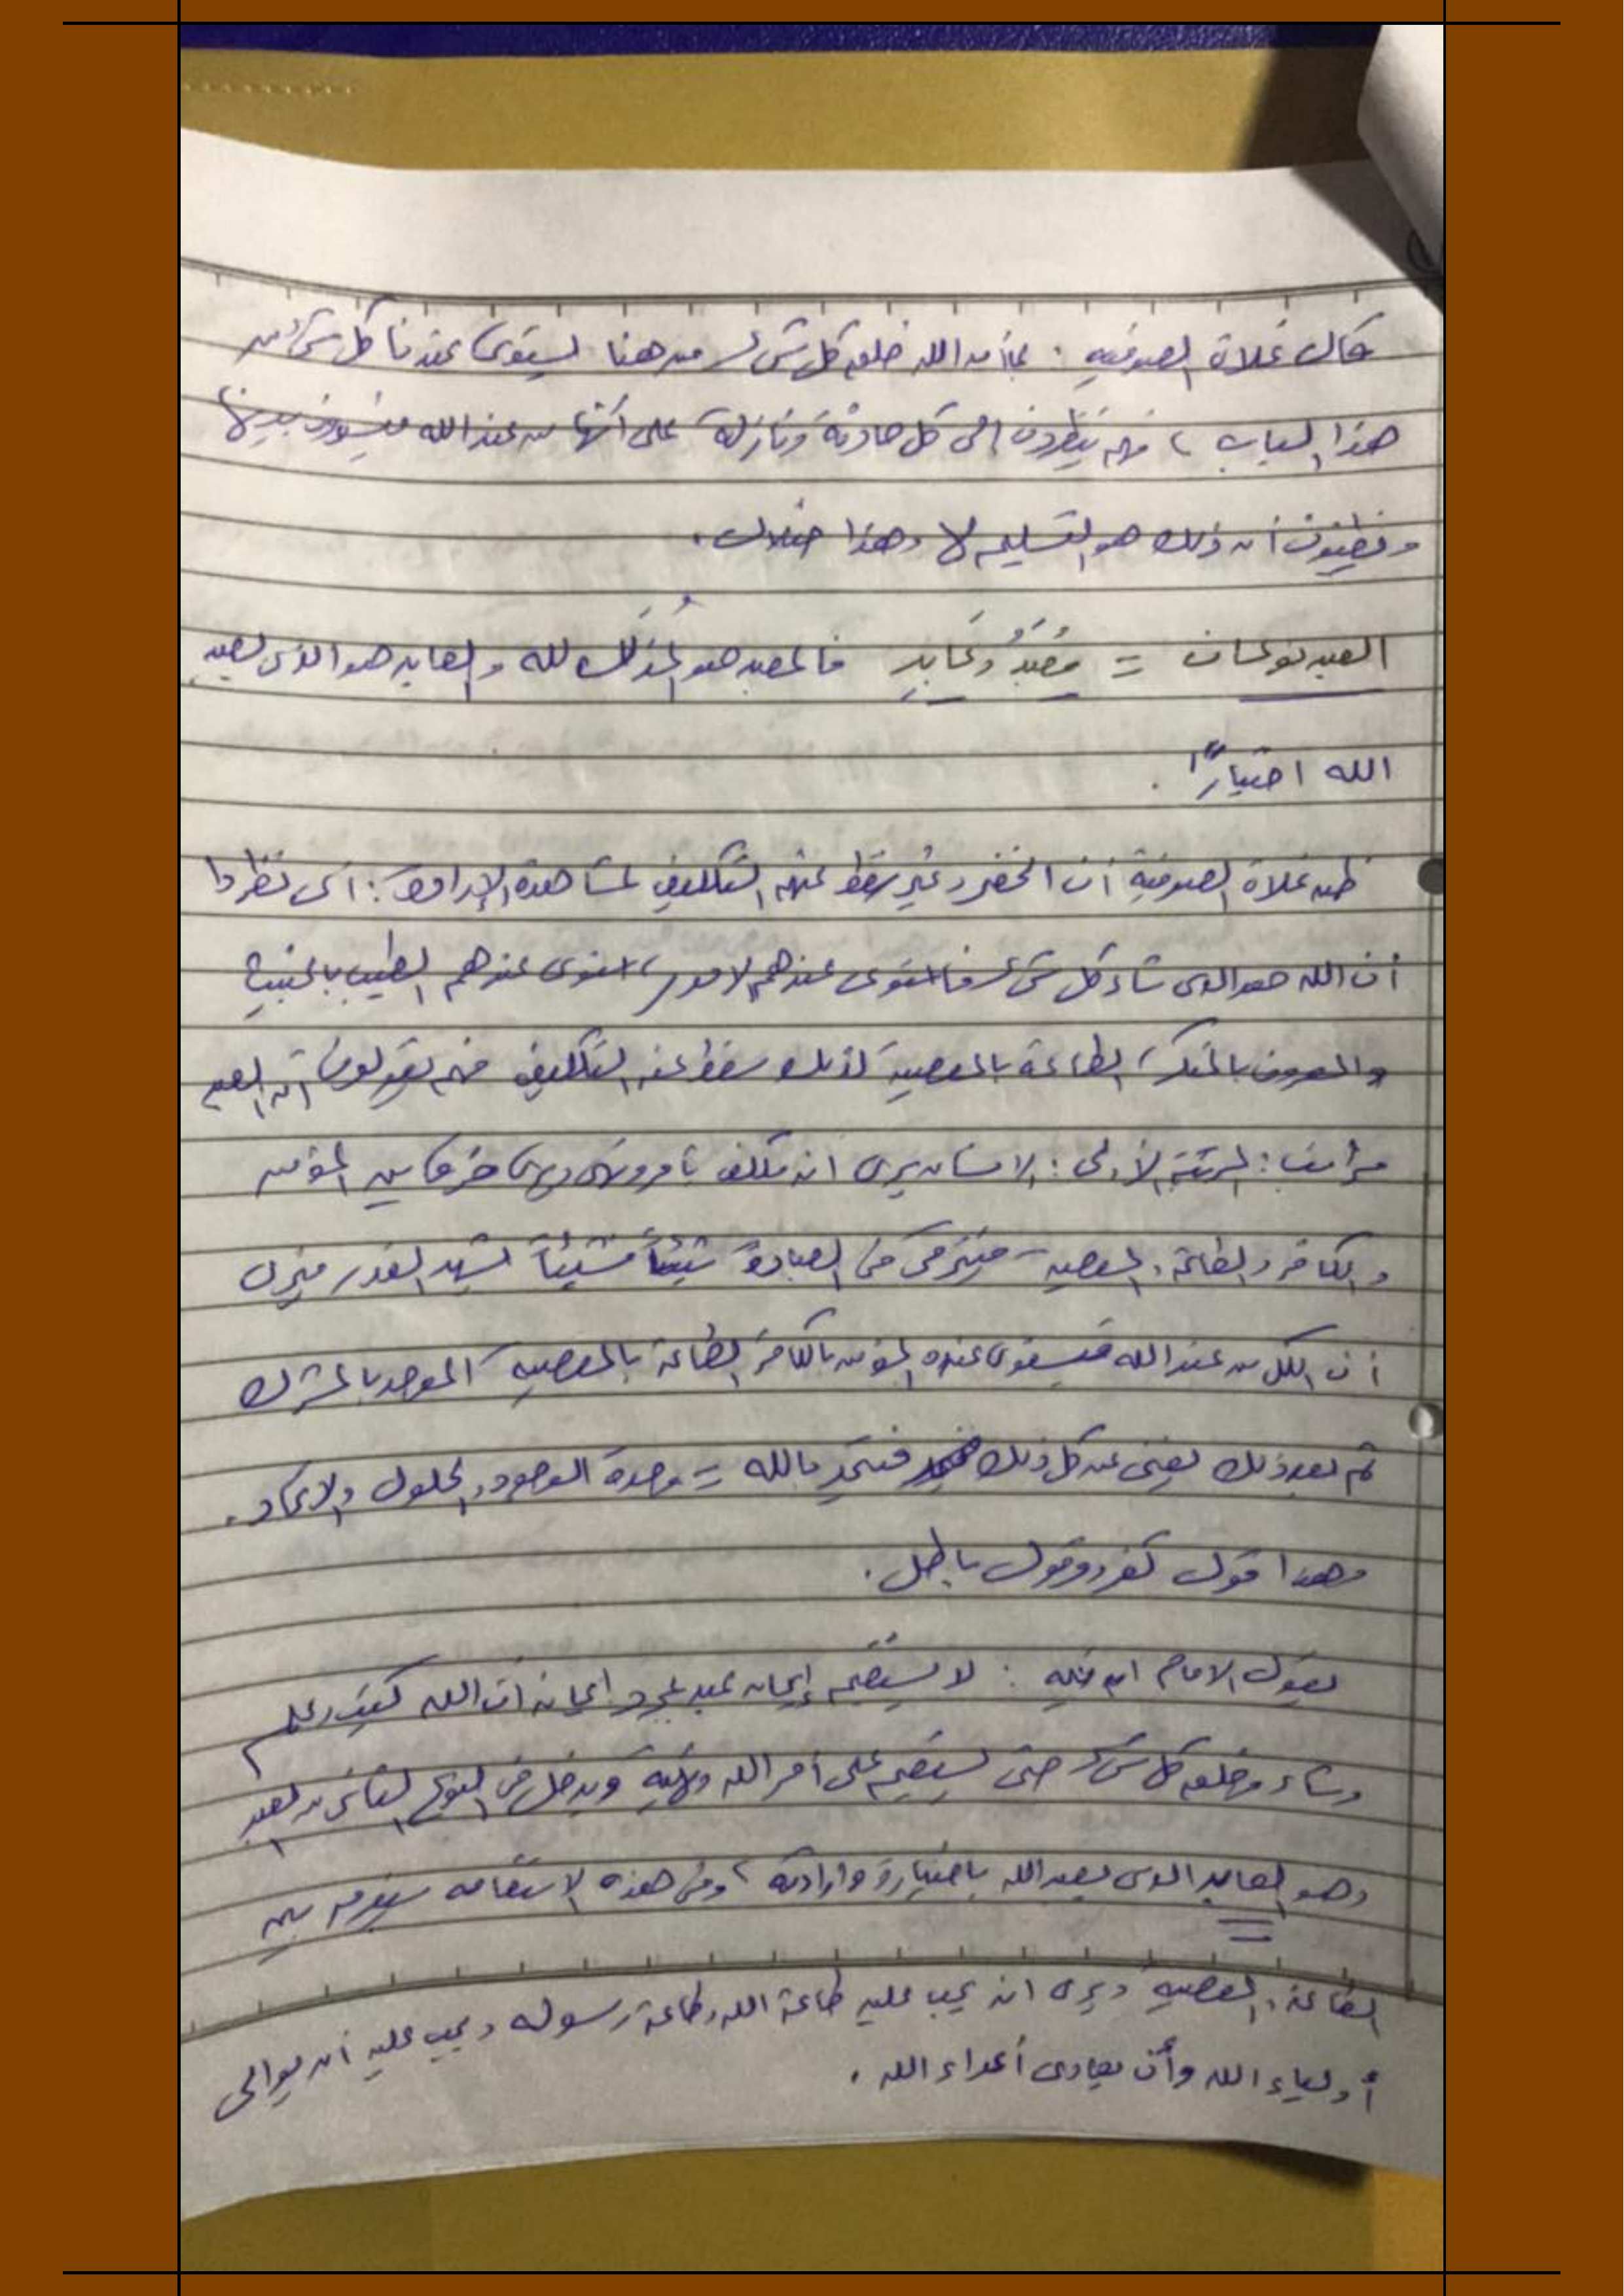 قال غلاة الصوفية : بما أن الله خلق كل شئ من هنا يستوى عندنا كل شئ من
هذا الباب ، فهم ينظرون إلى كل حادثة ونازلة على أنها من عند الله فيسوون بينها
ويظنون أن ذلك هو التسليم لا وهذا ضلال .
العبد نوعان = مُعَبَّدُ وعَابِد فالمعبد هو المُذَلَّل لله والعابد هو الذى يعبد
الله اختياراً .
ظن غلاة الصوفية أن الخضر وغيره سقط عنهم التكليف لمشاهدة الإرادة : أى نظروا
أن الله هو الذى شاء كل شئ فاستوى عندهم الأمور ، استوى عندهم الطيب بالخبيث
والمعروف بالمنكر ، الطاعة بالمعصية لذلك سقط عنه التكليف فهم يقولون أن العبد
مراتب : المرتبة الأولى : الإنسان يرى أنه مكلف بأمر ونهى ويرى فرقاً بين المؤمن
والكافر والطاعة والمعصية - فيترقى فى العبادة شيئاً فشيئاً يشهد القدر فيرى
أن الكل من عند الله فيستوى عنده المؤمن بالكافر الطاعة بالمعصية الموحد بالمشرك
ثم بعد ذلك يفنى عن كل ذلك فيتحد بالله = وحدة الوجود والحلول والاتحاد .
وهذا قول كفر وقول باطل .
يقول الإمام ابن تيمية : لا يستقيم إيمان عبد بمجرد إيمانه أن الله كتب وعلم
وشاء وخلق كل شئ حتى يستقيم على أمر الله ونهيه ويدخل فى النوع الثانى من العبد
وهو العابد الذى يعبد الله باختياره وإرادته ، وفى هذه الاستقامة سيفرق بين
الطاعة والمعصية ويرى أنه يجب عليه طاعة الله وطاعة رسوله ويجب عليه أن يوالى
أولياء الله وأن يعادى أعداء الله .